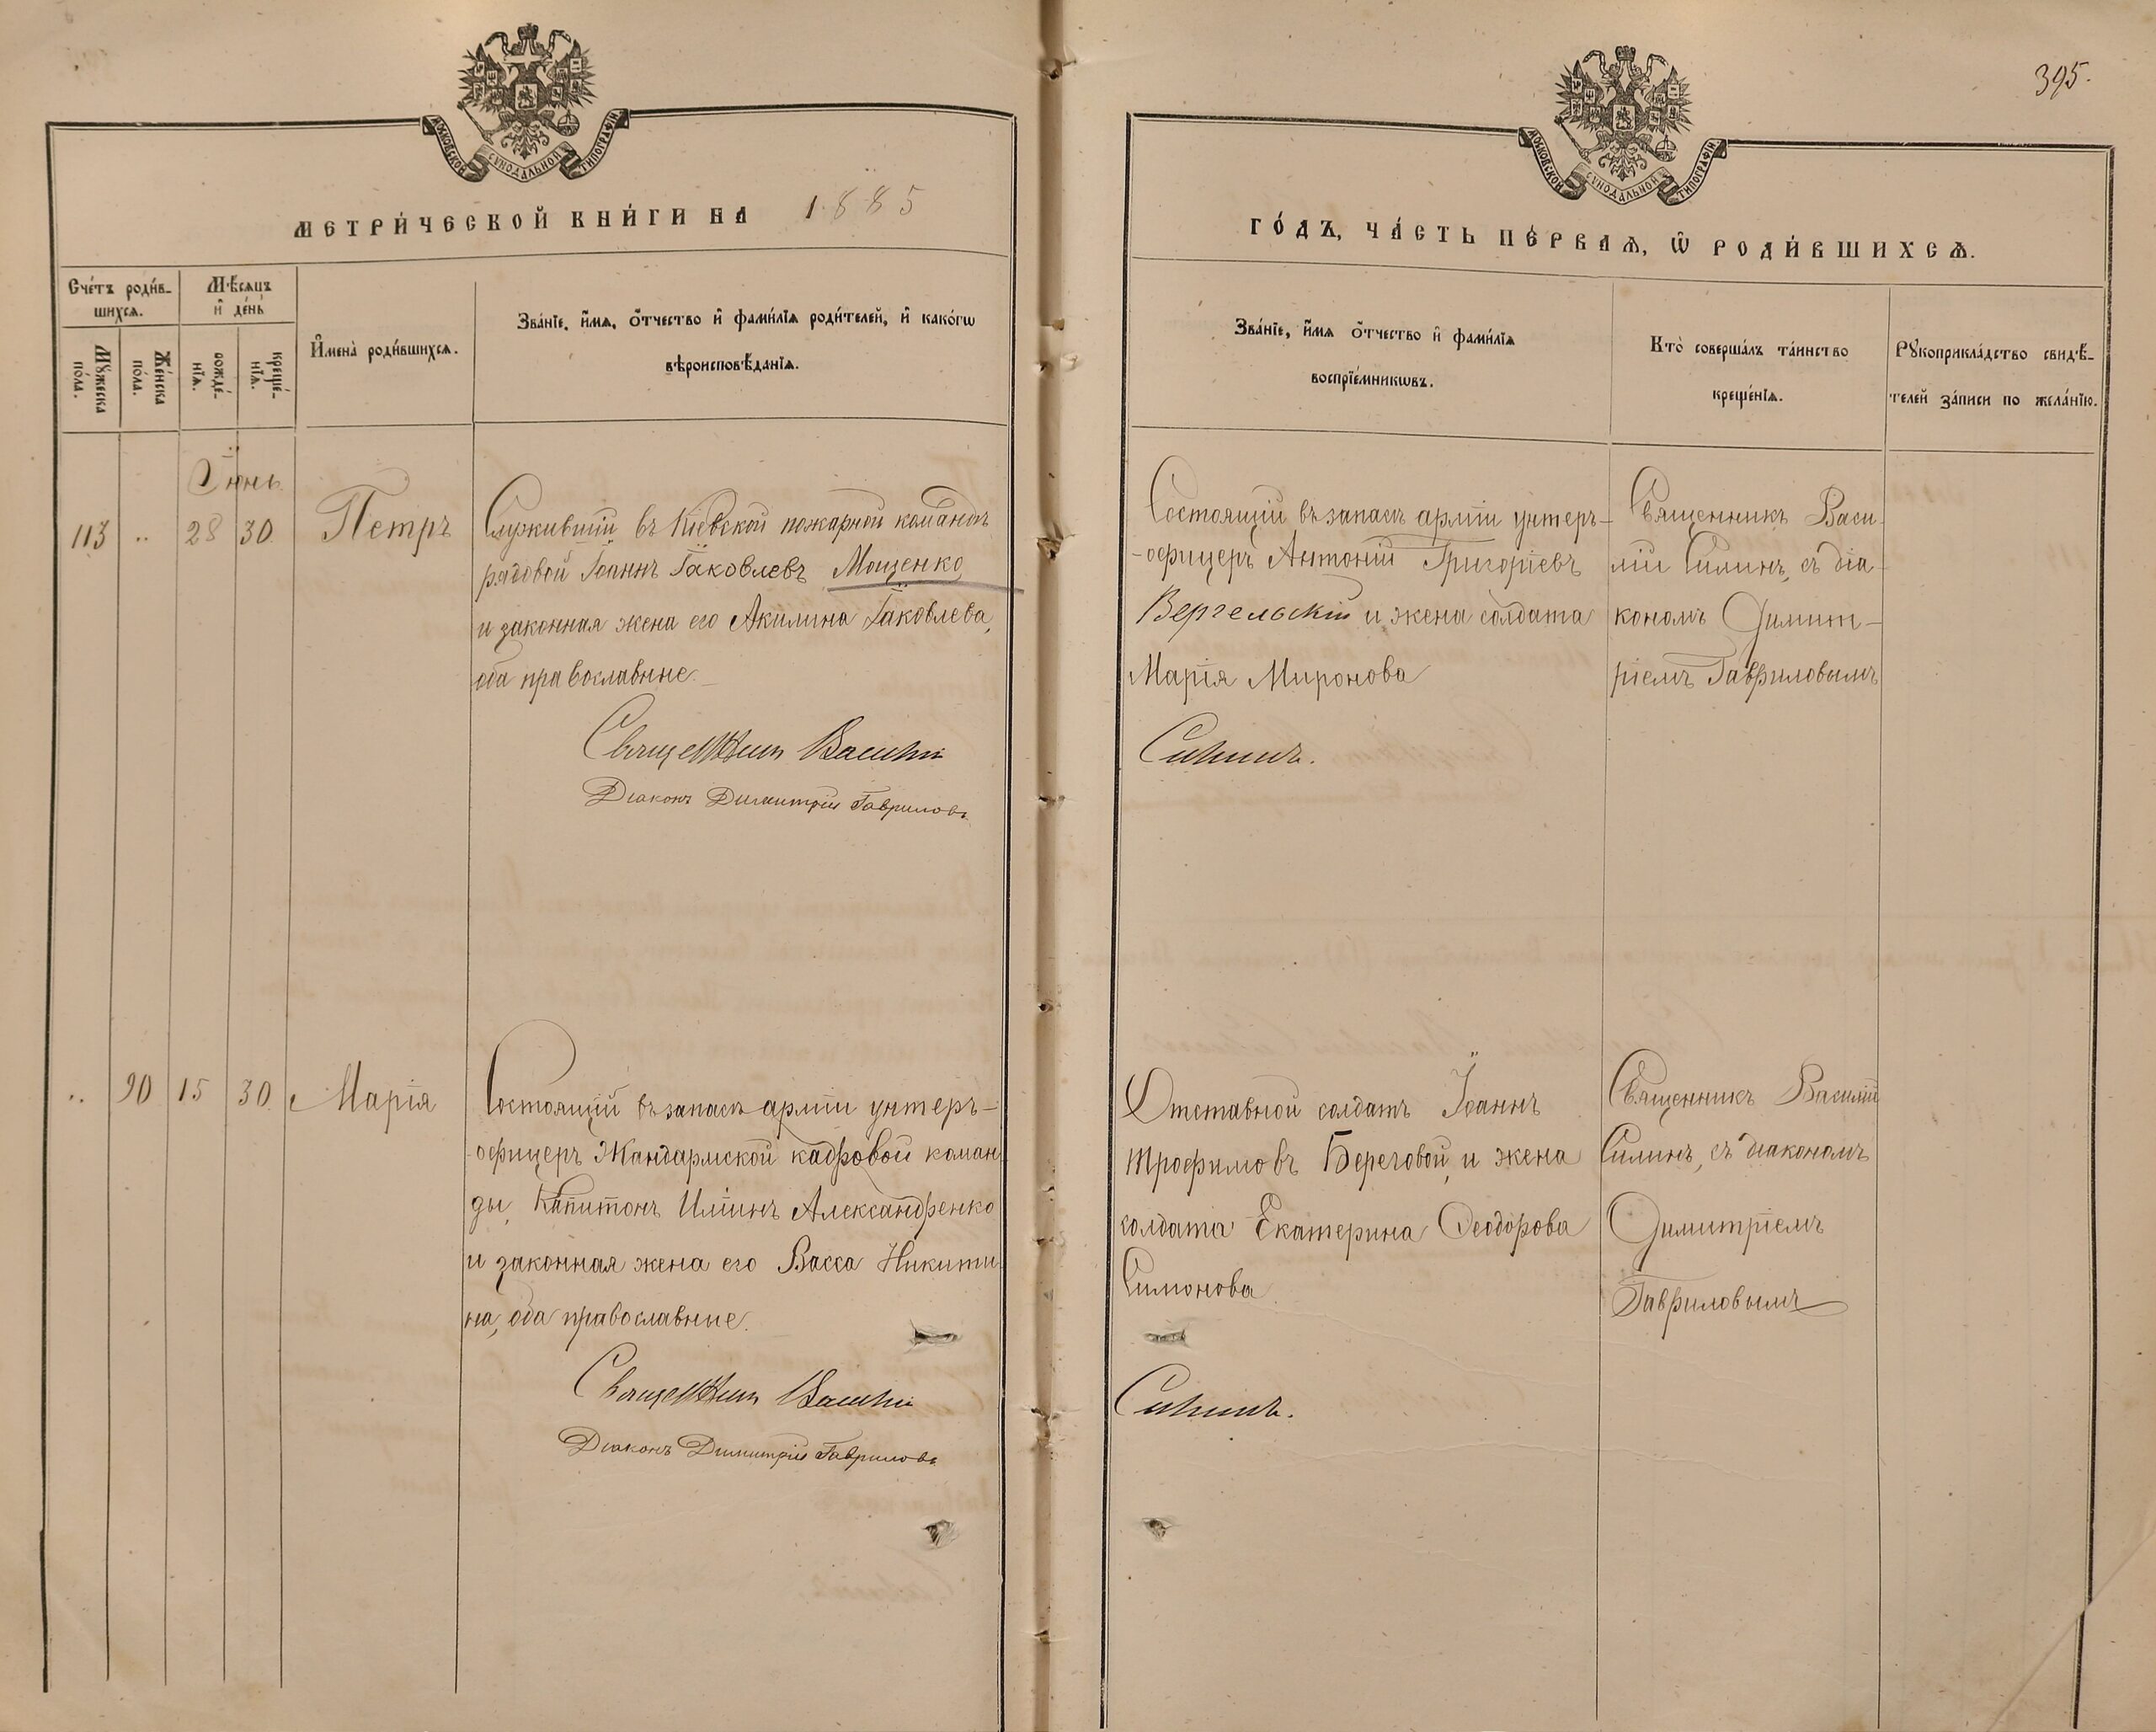 395.
МОСКОВСКОЙ СѴНОДАЛЬНОЙ ТИПОГРАФІИ
МОСКОВСКОЙ СѴНОДАЛЬНОЙ ТИПОГРАФІИ
МЕТРИ́ЧЕСКОЙ КНИ́ГИ НА 1885
ГО́ДЪ, ЧА́СТЬ ПЕ́РВАѦ, Ѽ РОДИ́ВШИХСѦ.
Счéтъ роди́в-
шихсѧ.
Мѣ́сѧцъ
и҆ де́нь
Мꙋ́жеска
по́ла.
Же́нска
по́ла.
рожде́-
нїѧ.
креще́-
нїѧ.
И҆мена̀ роди́вшихсѧ.
Зва́нїе, и҆́мѧ, ѻ҆́тчество и҆ фами́лїѧ роди́телей, и҆ како́гѡ
вѣроисповѣ́данїѧ.
Зва́нїе, и҆́мѧ ѻ҆́тчество и҆ фами́лїѧ
воспрїе́мникѡвъ.
Кто̀ соверша́лъ та́инство
креще́нїѧ.
Рꙋкоприкла́дство свидѣ́-
телей за́писи по жела́нїю.
Іюнь.
113 .. 28 30. Петръ
Служившій въ Кіевской пожарной командѣ
рядовой Іоаннъ Іаковлевъ Мощенко
и законная жена его Акилина Іаковлева,
оба православные.
Священникъ Василій
Діаконъ Димитрій Гавриловъ
Состоящій въ запасѣ арміи унтеръ-
-офицеръ Антоній Григоріевъ
Вергельскій и жена солдата
Марія Миронова
Силинъ.
Священникъ Васи-
лій Силинъ, съ діа-
кономъ Димит-
ріемъ Гавриловымъ
.. 90 15 30. Марія
Состоящій въ запасѣ арміи унтеръ-
-офицеръ Жандармской кадровой коман-
ды, Капитонъ Иліинъ Александренко
и законная жена его Васса Никити-
на, оба православные.
Священникъ Василій
Діаконъ Димитрій Гавриловъ
Отставной солдатъ Іоаннъ
Трофимовъ Береговой, и жена
солдата Екатерина Феодорова
Симонова
Силинъ.
Священникъ Василій
Силинъ, съ діакономъ
Димитріемъ
Гавриловымъ